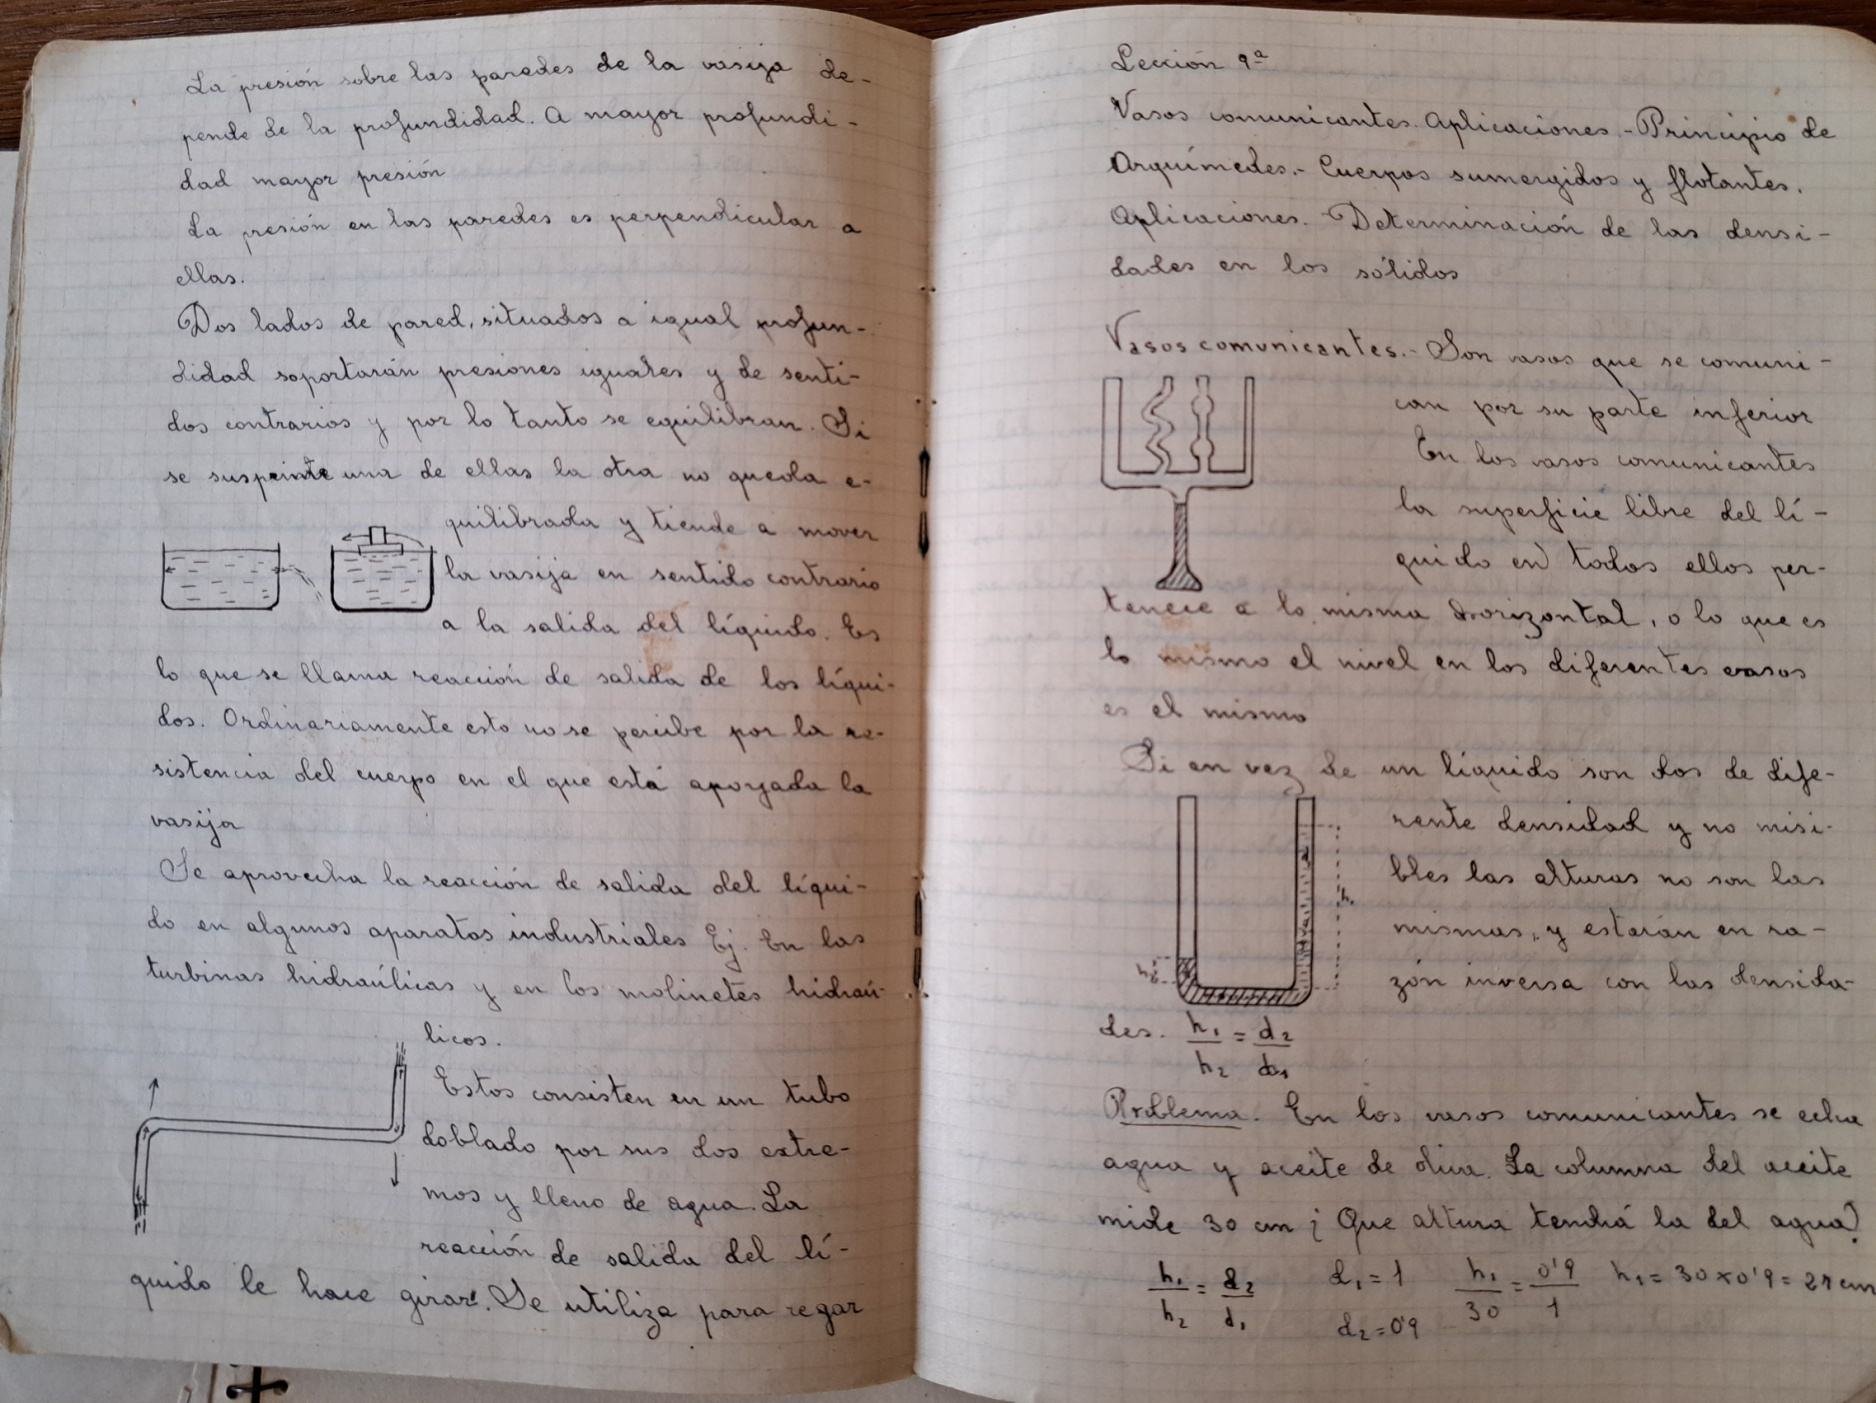 La presión sobre las paredes de la vasija de-
pende de la profundidad. A mayor profundi-
dad mayor presión
La presión en las paredes es perpendicular a
ellas.
Dos lados de pared, situados a igual profun-
didad soportarán presiones iguales y de senti-
dos contrarios y por lo tanto se equilibran. Si
se una de ellas la otra no queda e-
quilibrada y tiende a mover
la vasija en sentido contrario
a la salida del líquido. Es
lo que se llama reacción de salida de los líqui-
dos. Ordinariamente esto no se percibe por la re-
sistencia del cuerpo en el que está apoyada la
vasija
Se aprovecha la reacción de salida del líqui-
do en algunos aparatos industriales Ej. En las
turbinas hidraúlicas y en los molinetes hidraú-
licos.
Estos consisten en un tubo
doblado por sus dos extre-
mos y lleno de agua. La
reacción de salida del lí-
quido le hace girar. Se utiliza para regar
Lección 9ª
Vasos comunicantes. Aplicaciones.- Principio de
Arquímedes.- Cuerpos sumergidos y flotantes.
Aplicaciones.- Determinación de las densi-
dades en los sólidos
Vasos comunicantes.- Son vasos que se comuni-
can por su parte inferior
En los vasos comunicantes
la superficie libre del lí-
quido en todos ellos per-
tenece a la misma horizontal, o lo que es
lo mismo el nivel en los diferentes vasos
es el mismo
Si en vez de un líquido son dos de dife-
rente densidad y no misi-
bles las alturas no son las
mismas, y estarán en ra-
zón inversa con las densida-
des. h₁/h₂ = d₂/d₁
Problema. En los vasos comunicantes se echa
agua y aceite de oliva. La columna del aceite
mide 30 cm ¿Que altura tendrá la del agua?
h₁/h₂ = d₂/d₁ d₁ = 1 h₁/30 = 0'9/1 h₁ = 30 x 0'9 = 27 cm
d₂ = 0'9